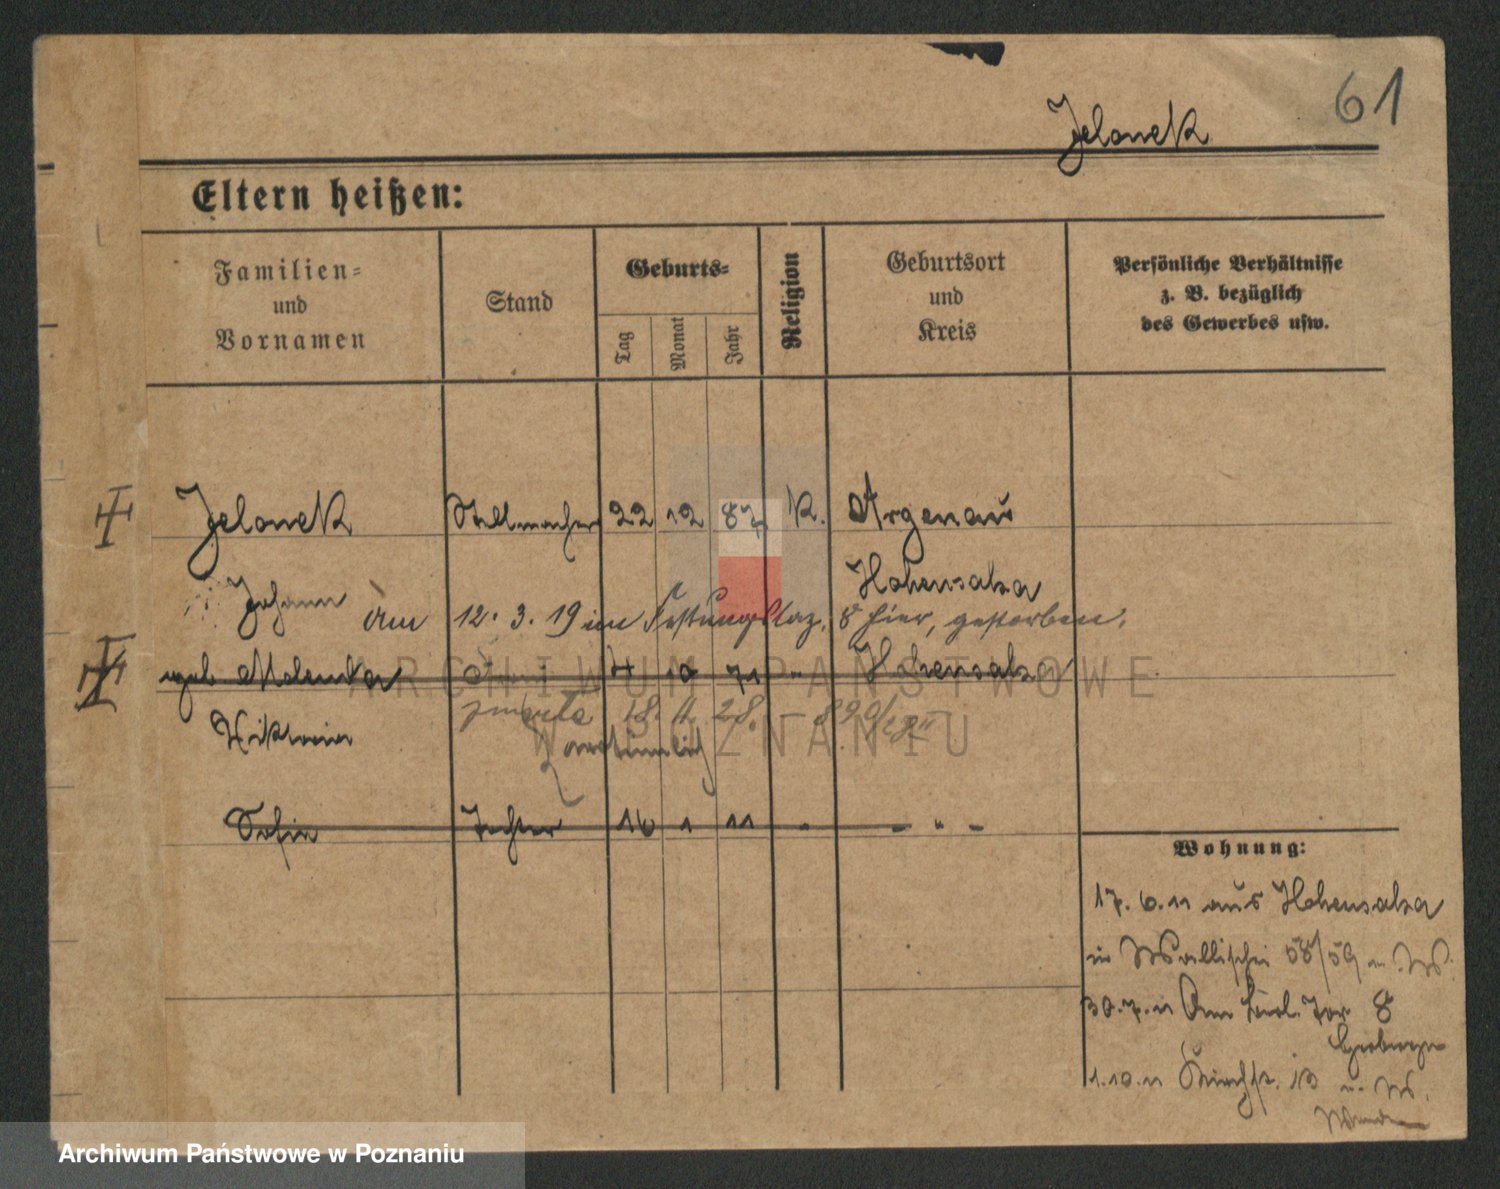 61
Jelonek
Eltern heißen:
Familien-
und
Vornamen
Stand
Geburts-
Tag
Monat
Jahr
Religion
Geburtsort
und
Kreis
Persönliche Verhältnisse
z. B. bezüglich
des Gewerbes usw.
Jelonek Stellmacher 22 12 87 K. Argenau
Johann Hohensalza
Am 12. 3. 19 im Festungslaz. 8 hier, gestorben.
4 10 71 " Hohensalza
zmarła 18. 11. 28.
Sofie Tochter 16 1 11 " - " -
Wohnung:
17. 6. 11 aus Hohensalza
in Wallischei 58/59 W.
30. 7. 11 Am Berl. Tor 8
1. 10. 11 13 W.
ARCHIWUM PAŃSTWOWE
W POZNANIU
Archiwum Państwowe w Poznaniu